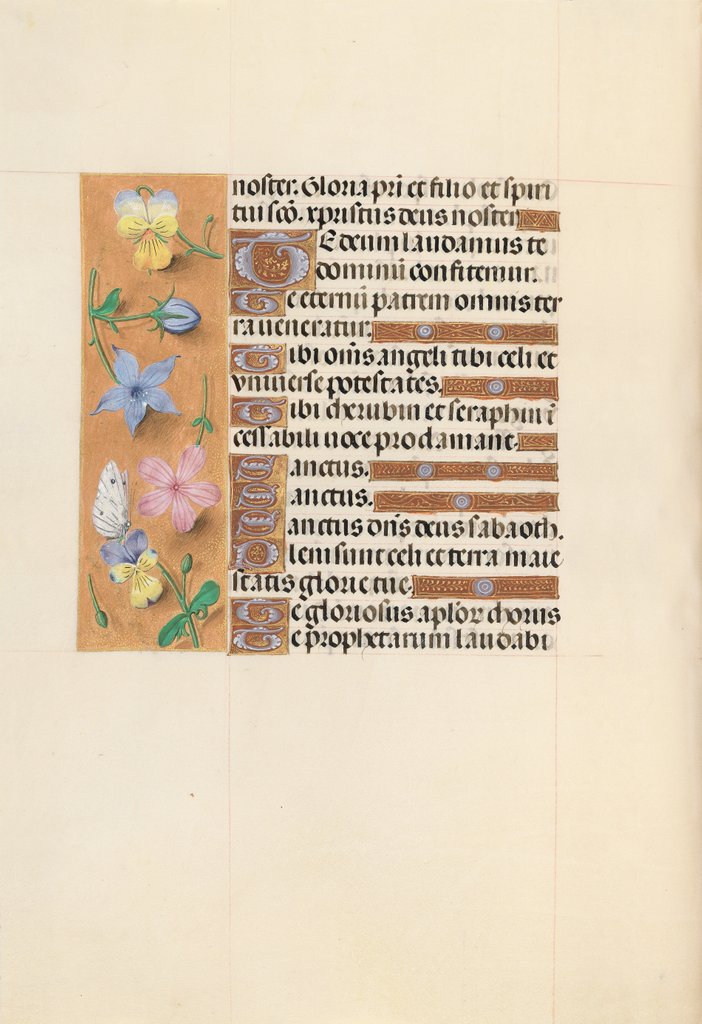 noster. Gloria pr̄i et filio et spiri
tui sc̄o. xpristus deus noster
Te deum laudamus te
dominū confitemur.
Te eternū patrem omnis ter
ra veneratur.
Tibi om̄s angeli tibi celi et
vniuerse potestates.
Tibi cherubin et seraphin ī
cessabili uoce proclamant.
Sanctus.
Sanctus.
Sanctus dn̄s deus sabaoth.
Pleni sunt celi et terra maie
statis glorie tue.
Te gloriosus aplōr chorus
Te prophetarum laudabi